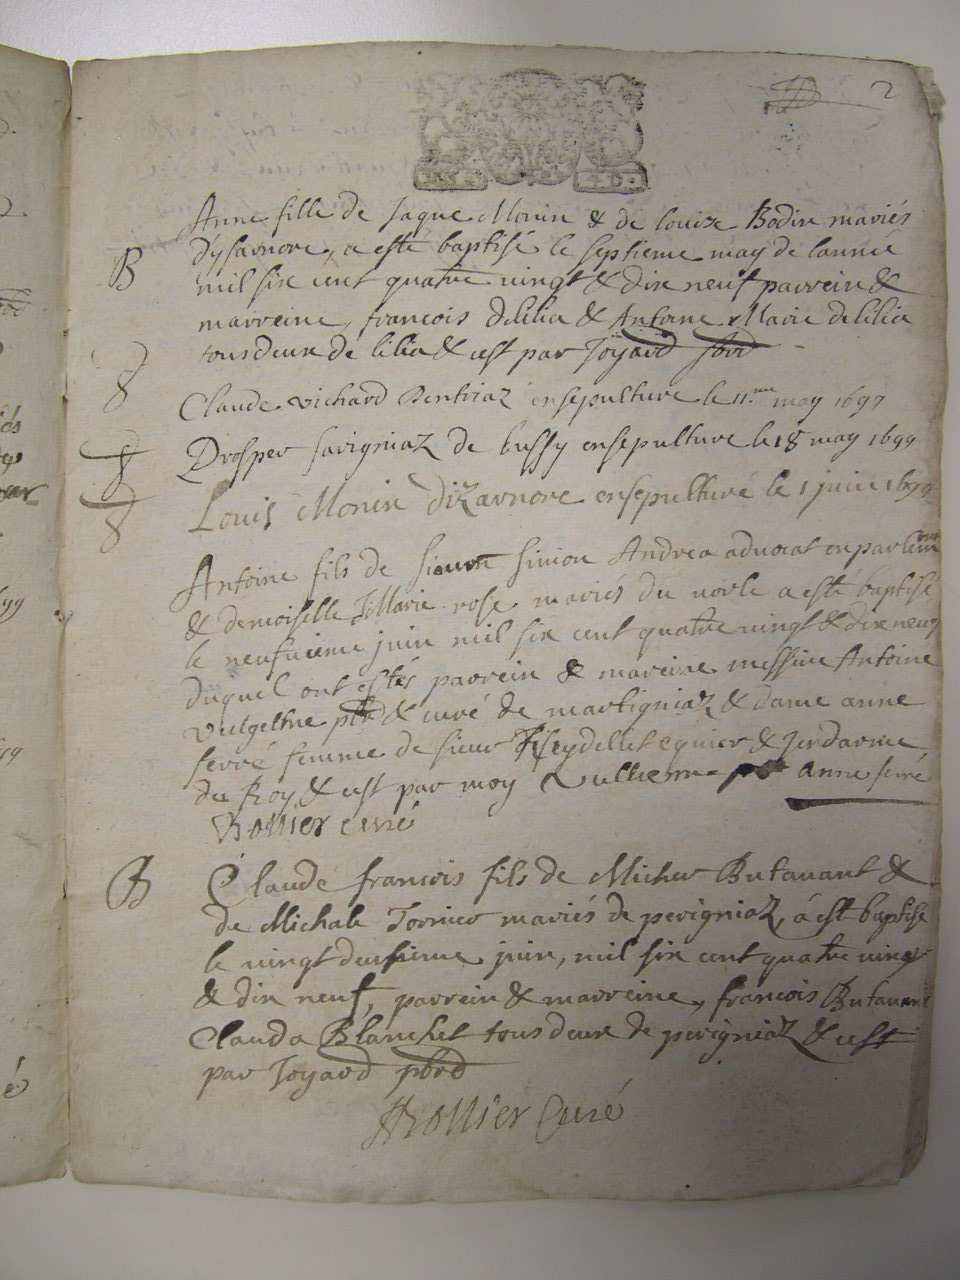 2
Anne fille de Jaque Monin & de louise Bodin mariés
d'ysarnore, a esté baptisé le septieme may de lanneé
B
mil six cent quatre vingt & dix neuf parrein &
marreine, francois delilia & Antoine Marie delilia
tous deux de lilia & est par Joyard pbre
Claude vichard ensepulture le 11.me may 1699
Prosper savigniaz de bussy ensepulture le 18 may 1699
Louis Monin dizarnore ensepulturé le 1 juin 1699
Antoine fils de simon Andrea advocat en parlemt
& demoiselle Marie rose mariés du a esté baptisé
le neufvieme juin mil six cent quatre vingt & dix neuf
duquel ont estés parrein & mareine messire Antoine
pbre & curé de martigniaz & dame anne
serré femme de sieur & Jendarme
du Roy & est par moy Vullierme pbre anne serré
Rollier curé
B
Claude francois fils de Micher Butavant &
de Michale Tornier mariés de perigniaz, a est baptise
le vingt deusieme juin, mil six cent quatre vingt
& dix neuf, parrein & marreine, francois Butavant
Clauda Blanchet tous deux de perigniaz & est
par Joyard pbre
Rollier Curé